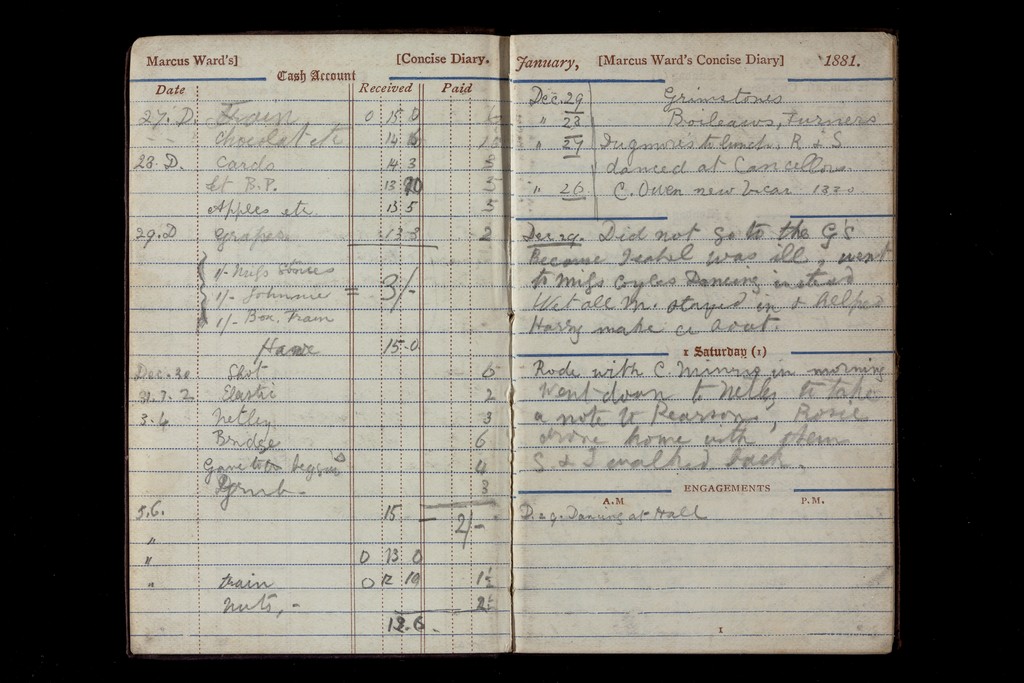 Marcus Ward's] [Concise Diary.
Cash Account
Date Received Paid
27. D. Train 0 15 0
Chocolat etc 14
28. D. Cards 14 3
B.P. 13 5
Apples etc 13 5 5
29. D Grapes 13 3 2
1/- Miss
1/- Johnnie = 3/-
1/- Box. Train
Have 15-0
Dec. 30 Shot 6
31. 1. 2 Elastic 2
3-4 Netley 3
Bridge 6
Gave to beggar 4
Grub 3
5.6. 15 - 2/-
"
" 0 13 0
" train 0 12 10 1½
nuts, - 2½
12.6.
January, [Marcus Ward's Concise Diary] 1881.
Dec. 29 Grimstones
" 28 Boileaws, Turners
" 27 to lunch, R & S
danced at Cancellors
" 26 C. Owen new
Dec 29. Did not go to the G's
Because Isabel was ill, went
to Miss Coyles Dancing instead
Wet all M. stayed in & helped
Harry make a boat.
1 Saturday (1)
Rode with C. in morning
Went down to Netley to take
a note to Pearson, Rosie
drove home with them
S & I walked back.
ENGAGEMENTS
A.M P.M.
D. 29. Dancing at Hall
1